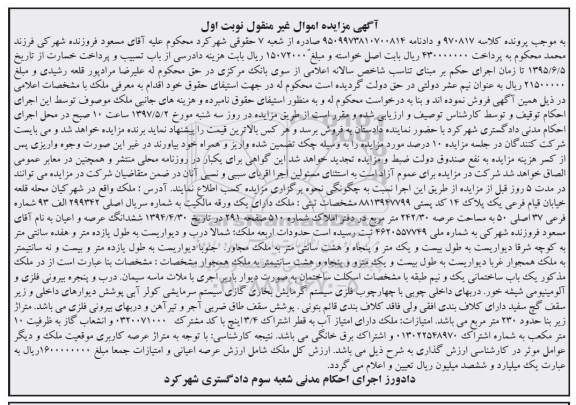 آگهی مزایده اموال غیر منقول نوبت اول
به موجب پرونده کلاسه ۹۷۰۸۱۷ و دادنامه ۹۵۰۹۹۷۳۸۱۰۷۰۰۸۱۴ صادره از شعبه ۷ حقوقی شهرکرد محکوم علیه آقای مسعود فروزنده شهرکی فرزند
محمد محکوم به پرداخت ۴۳۰۰۰۰۰۰۰ ریال بابت اصل خواسته و مبلغ ۱۵۰۷۲۰۰۰ ریال بابت هزینه دادرسی از باب تسبیب و پرداخت خسارت از تاریخ
۱۳۹۵/۶/۵ تا زمان اجرای حکم بر مبنای تناسب شاخص سالانه اعلامی از سوی بانک مرکزی در حق محکوم له علیرضا مرادپور قلعه رشیدی و مبلغ
۲۱۵۰۰۰۰۰ ریال به عنوان نیم عشر دولتی در حق دولت گردیده است محکوم له در جهت استیفای حقوق خود اقدام به معرفی ملک با مشخصات اعلامی
در ذیل همین آگهی فروش نموده اند و بنا به درخواست محکوم له و به منظور استیفای حقوق نامبرده و هزینه های جانبی ملک موصوف توسط این اجرای
احکام توقیف و توسط کارشناس توصیف و ارزیابی شده و مقرر است از طریق مزایده در روز سه شنبه مورخ ۱۳۹۷/۵/۲ ساعت ۱۰ صبح در محل اجرای
احکام مدنی دادگستری شهرکرد با حضور نماینده دادستان به فروش برسد و هر کس بالاترین قیمت را پیشنهاد نماید برنده مزایده خواهد شد و می بایست
شرکت کنندگان در جلسه مزایده ۱۰ درصد مورد مزایده را به وسیله چک تضمین شده واریز و همراه خود بیاورند در غیر این صورت وجوه واریزی پس
از کسر هزینه مزایده به نفع صندوق دولت ضبط و مزایده تجدید خواهد شد این گواهی برای یکبار در روزنامه محلی منتشر و همچنین در معابر عمومی
الصاق خواهد شد شرکت در مزایده برای عموم آزاد است به استثنای مسئولین اجرا اقربای سببی و نسبی آنان در ضمن متقاضیان شرکت در مزایده می توانند
در مدت ۵ روز قبل از مزایده از طریق این اجرا نسبت به چگونگی نحوه برگزاری مزایده کسب اطلاع نمایند. آدرس : ملک واقع در شهر کیان محله قلعه
خیابان قیام فرعی یک پلاک ۱۴ کد پستی ۸۸۱۳۹۴۷۷۹۹ مشخصات ثبتی : ملک دارای یک ورقه مالکیت به شماره سریال اصلی ۲۹۹۳۴۲ الف ۹۳ شماره
فرعی ۳۷ اصلی ۵۰ به مساحت عرصه ۲۴۲/۳۰ متر مربع در دفتر املاک شماره ۵۱۰ صفحه ۲۹۱ در تاریخ ۱۳۹۴/۶/۳۰ ششدانگ عرصه و اعیان به نام آقای
مسعود فروزنده شهرکی به شماره ملی ۴۶۲۰۵۵۷۷۴۹ ثبت رسیده است حدودات اربعه ملک: شمالا درب و دیواریست به طول یازده متر و هفده سانتی متر
به کوچه شرقا دیواریست به طول بیست و یک متر و پنجاه و هشت سانتی متر به ملک مجاور جنوبا دیواریست به طول یازده متر و بیست و نه سانتیمتر
به ملک همجوار غربا دیواریست به طول بیست و یک متر و پنجاه و هشت سانتیمتر به ملک همجوار مشخصات : مشخصات بنا عبارت است از در ملک
مذکور یک باب ساختمانی یک و نیم طبقه با مشخصات اسکلت ساختمان به صورت دیوار باربر آجری با ملات ماسه سیمان. درب و پنجره بیرونی فلزی و
آلومینیومی شیشه خور. دربهای داخلی چوبی با چهارچوب فلزی سیستم گرمایش بخاری گازی سیستم سرمایشی کولر آبی پوشش دیوارهای داخلی و زیر
سقف گچ سفید دارای کلاف بندی افقی ولی فاقد کلاف بندی قائم بتونی . پوشش سقف طاق ضربی آجر و تیرآهن و دربهای بیرونی فلزی می باشد. متراژ
زیر بنا حدود ۲۳۰ متر مربع می باشد. امتیازات: ملک دارای امتیاز آب به قطر اشتراک ۳/۴ اینچ با کد مشترک ۰۳۲۰۰۷۱۰۰۰ و انشعاب گاز به ظرفیت ۱۰
متر مکعب به شماره اشتراک ۰۱۳۰۲۲۵۴۸۹۷۰ و اشتراک برق خانگی می باشد. نتیجه کارشناسی: با توجه به متراژ عرصه کاربری موقعیت ملک و دیگر
عوامل موثر در کارشناسی ارزش گذاری به شرح ذیل می باشد. ارزش کل ملک شامل ارزش عرصه اعیانی و امتیازات جمعا مبلغ ۱۶۰۰۰۰۰۰۰۰ ریال به
عبارت یک میلیارد و ششصد میلیون ریال تعیین و اعلام می گردد.
دادورز اجرای احکام مدنی شعبه سوم دادگستری شهرکرد